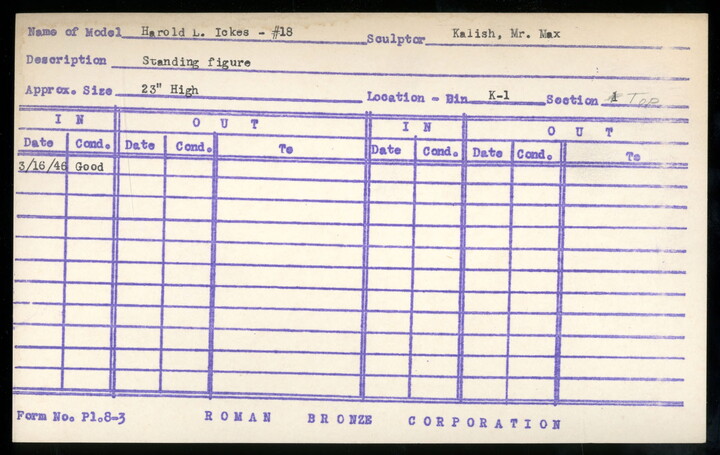 Name of Model Harold L. Ickes - #18 Sculptor Kalish, Mr. Max
Description Standing figure
Approx. Size 23" High Location - Bin K-1 Section 1 Top
I N O U T I N O U T
Date Cond. Date Cond. To Date Cond. Date Cond. To
3/16/46 Good
Form No. Pl.8-3 ROMAN BRONZE CORPORATION